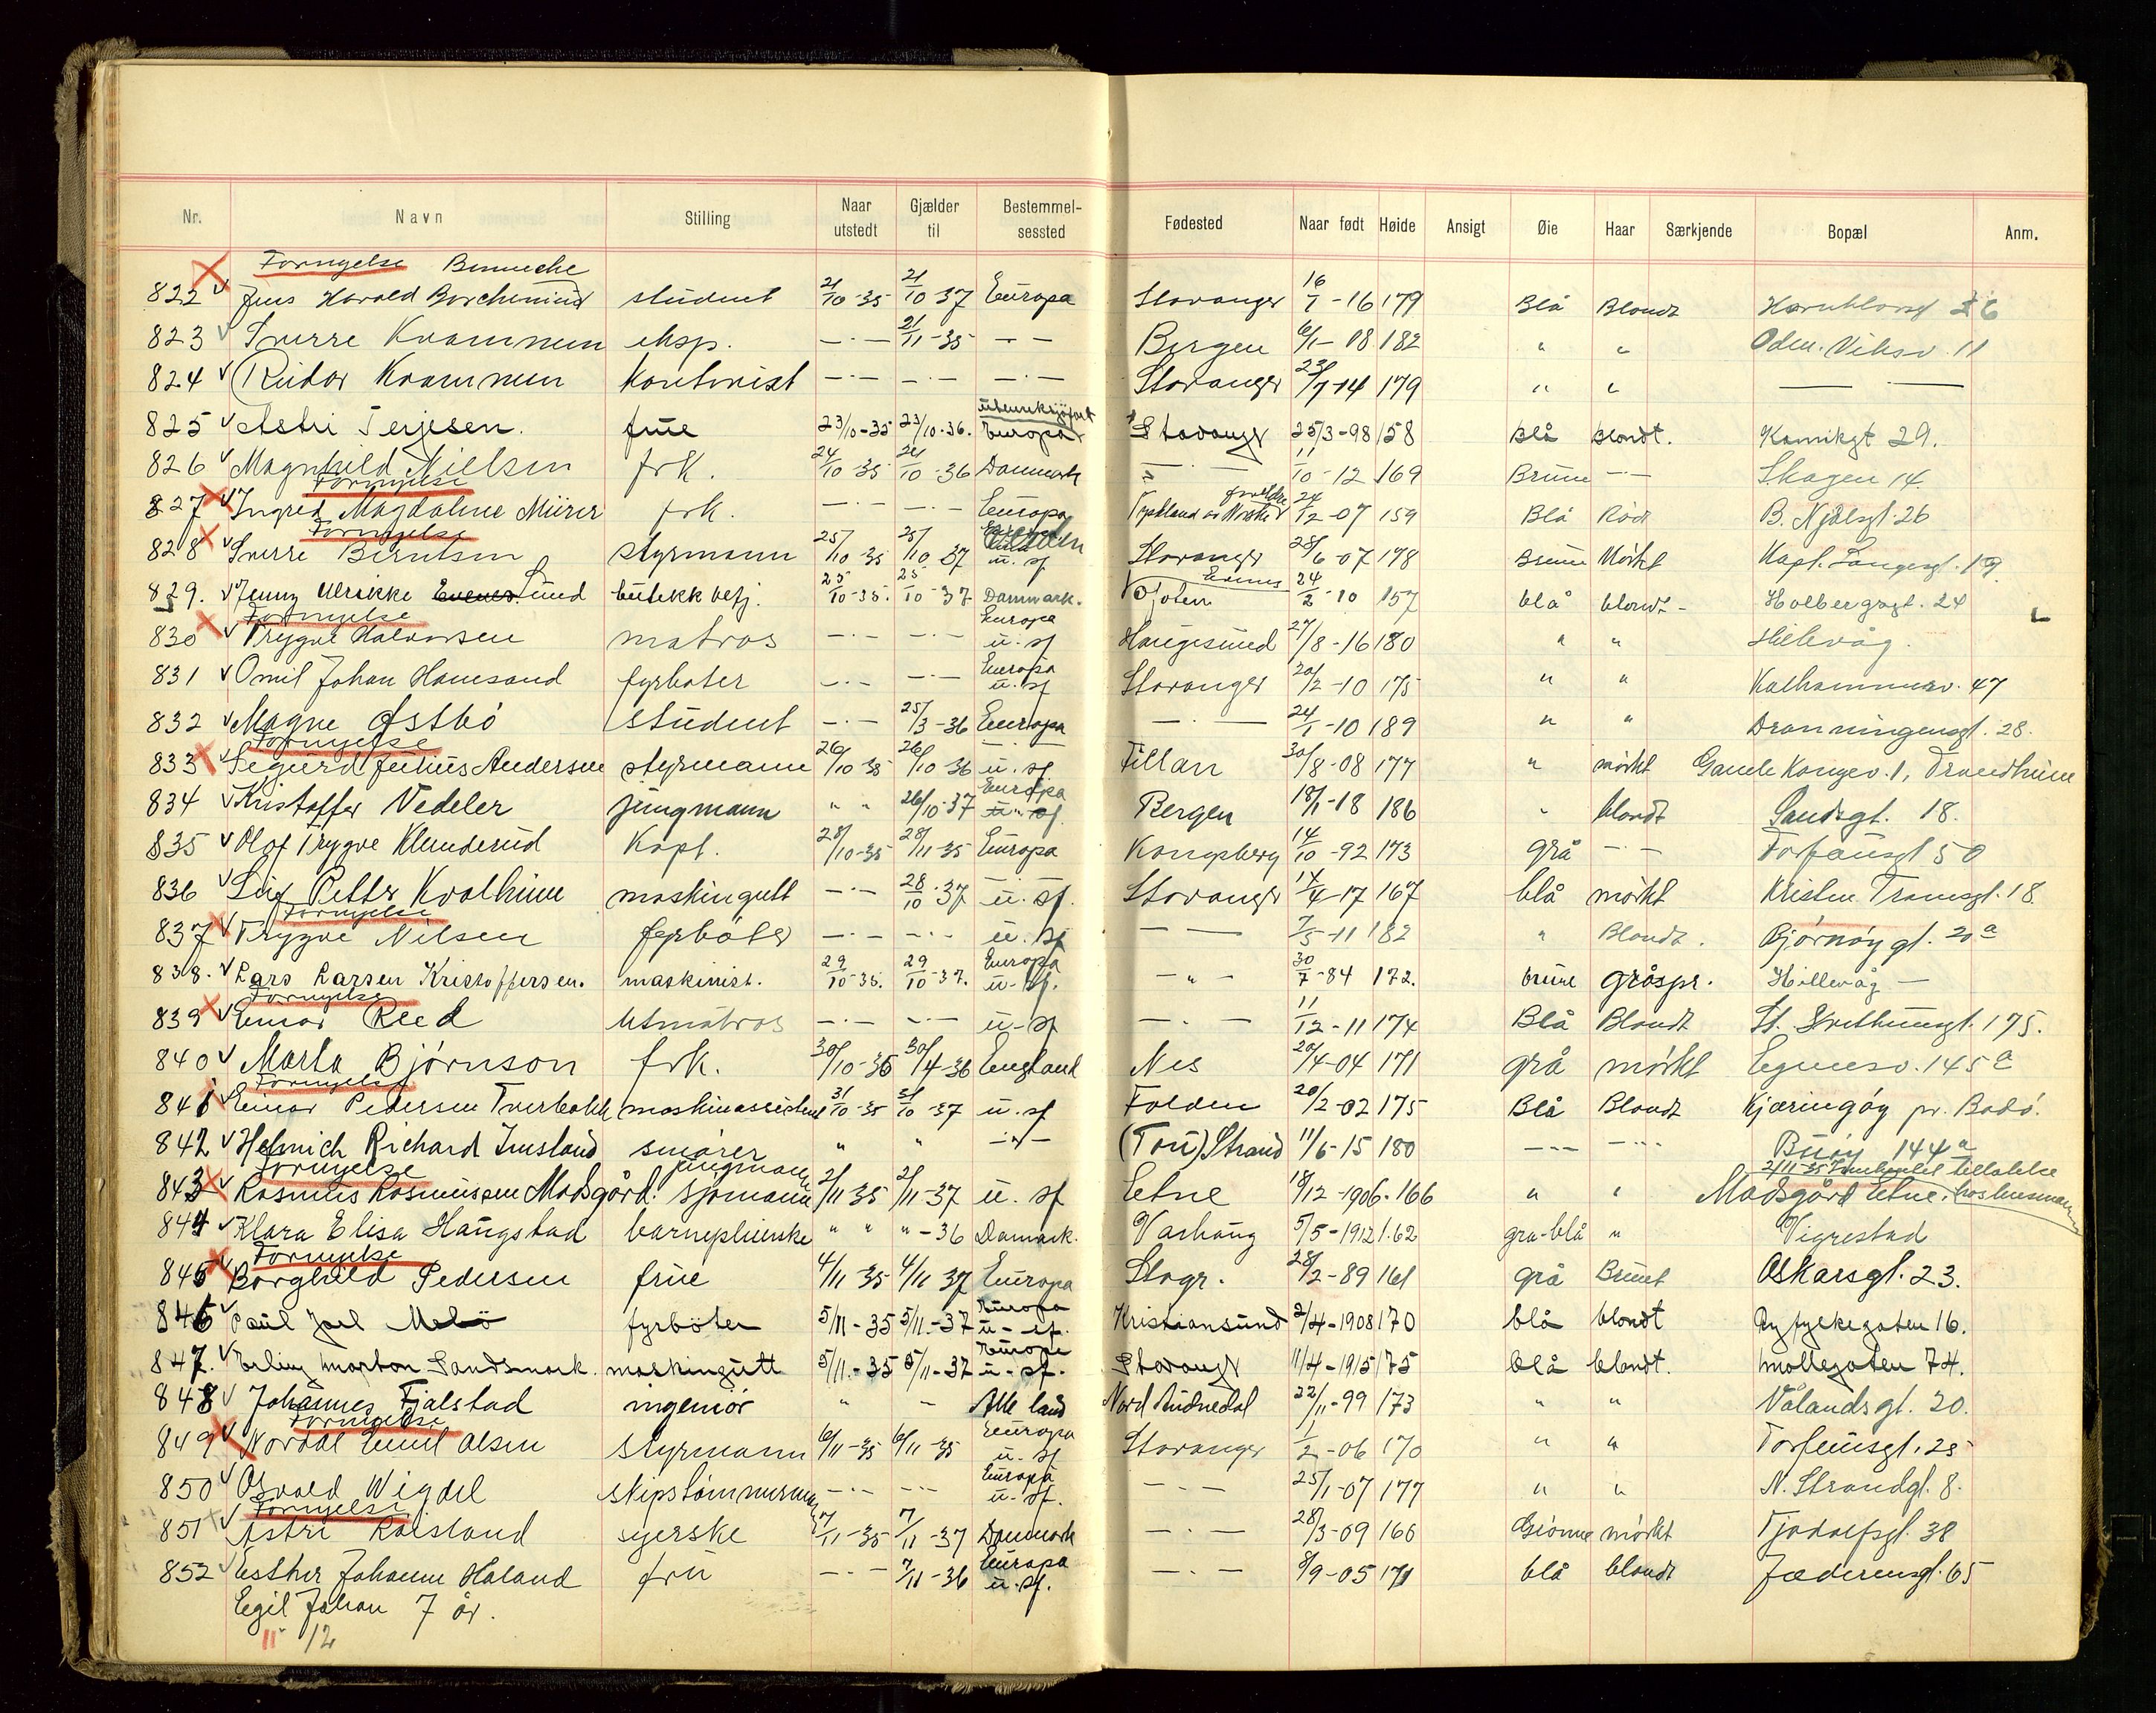 Nr. Navn Stilling Naar utstedt Gjælder til Bestemmelsessted Fødested Naar født Høide Ansigt Øie Haar Særkjende Bopæl Anm.
Fornyelse
822 Jens Harald student 21/10-35 21/10-37 Europa Stavanger 16/7-16 179 Blå Blondt
823 Sverre Krammen eksp. —·— 21/11-35 — — Bergen 6/1-08 182 " " 11
824 Reidar Krammen Kontorist —·— —·— —·— Stavanger 23/7-14 179 " " — —
825 Astri Terjesen. frue 23/10-35 23/10-36. Europa Stavanger 25/3-98 158 Blå blondt. Kannikgt 29.
826 Magnhild Nielsen frk. 24/10-35 24/10-36 Danmark —·— 11/10-12 169 Brune —·— Skagen 14.
Fornyelse
827 Ingrid Magdalene frk. —·— —·— Europa Tyskland av Norske foreldre 24/12-07 159 Blå Rød B. Njålsgt. 26
Fornyelse
828 Sverre Berntsen styrmann 25/10-35 25/10-37 u. sf Stavanger 28/6-07 178 Brune Mörkt Kapt. Langesgt. 19.
829. Jenny Ulrikke Lund butikkbetj. 25/10-35. 25/10-37 Danmark. Toten 24/2-10 157 blå blondt - Holbergsgt. 24
Fornyelse
830 Trygve Halvorsen matros —·— —·— Europa u. sf Haugesund 27/8-16 180 " " Hillevåg.
831 Omil Johan Hanesand fyrbøter —·— —·— Europa u. sf Stavanger 20/2-10 175 " " Kalhammerv. 47
832 Magne Østbö student —·— 25/3-36 Europa —·— 24/1-10 189 " " Dronningensgt. 28.
Fornyelse
833 Sigurd Julius Andersen styrmann 26/10-35 26/10-36 u. sf Fillan 30/8-08 177 " mörkt Gamle Kongev. 1, Trondheim
834 Kristoffer Vedeler jungmann " " 26/10-37 Europa u. sf. Bergen 18/1-18 186 " blondt Sandsgt. 18.
835 Olaf Trygve Klunderud Kapt. 28/10-35 28/11-35 Europa Kongsberg 14/10-92 173 grå — — Torfæusgt 50
836 Leif Petter Kvalheim maskingutt —·— 28/10-37 u. sf. Stavanger 14/4-17 167 blå mörkt Kristen Transgt. 18.
Fornyelse
837 Trygve Nilsen fyrböter —·— —·— u. sf — — 7/5-11 182 " Blondt. Bjørnøygt. 20 a
838. Lars Larsen Kristoffersen. maskinist. 29/10-35. 29/10-37. Europa u. sf. —"— 30/7-84 172. brune gråspr. Hillevåg —
Fornyelse
839 Einar Reed —·— —·— u. sf —·— 11/12-11 174 Blå Blondt St. Svithunsgt. 175.
840 Marta Bjørnson frk. 30/10-35 30/4-36 England Nes 20/4-04 171 grå mörkt Egenesv. 145 a
Fornyelse
841 Einar Pedersen Tverbakk maskinassistent 31/10-35 31/10-37 u. sf Folden 20/2-02 175 Blå Blondt Kjæringøy pr. Bodö.
842 Helmich Richard Imsland smører " " —"— (Tou) Strand 11/6-15 180 —·— —·— Buøy 144 a
Fornyelse jungmann
843 Rasmus Rasmussen Madsgård. sjømann 2/11-35 2/11-37 u. sf Etne 18/12-1906. 166 " " Madsgård Etne.
844 Klara Elisa Haugstad barnepleierske " " " -36 Danmark. Varhaug 5/5-1912 1.62 gra-blå " Vigrestad
Fornyelse
845 Borghild Pedersen frue 4/11-35 4/11-37 Europa Stvgr. 28/2-89 161 grå Brunt Oskarsgt. 23.
846 Paul Jarl Melbö fyrböter 5/11-35 5/11-37 Europa u - sf. Kristiansund 2/4-1908 170 blå blondt Ryfylkegaten 16.
847. Erling Morton Sandsmark. maskingutt 5/11-35 5/11-37 Europa u - sf. Stavanger 11/4-1915 175 blå blondt. Møllegaten 74.
848 Johannes Fjalstad ingeniør " — Alle land Nord Audnedal 22/11-99 173 " " Vålandsgt. 20.
Fornyelse
849 Nordal Emil Olsen styrmann 6/11-35 6/11-35 Europa u. sf Stavanger 1/2-06 170 " " Torfæusgt. 25
850 Osvald Wigdel skipstømmermann —·— —·— Europa u. sf. —·— 25/1-07 177 " " N. Strandgt. 8.
Fornyelse
851 Astri Roisland syerske 7/11-35 7/11-37 Danmark —·— 28/3-09 166 mörkt Tjodolfsgt. 38
852 Esther Johanne Haland fru —·— 7/11-36 Europa u. sf. —·— 8/9-05 171 blå blondt Jæderensgt. 65
Egil Johan 7 år.
11 12